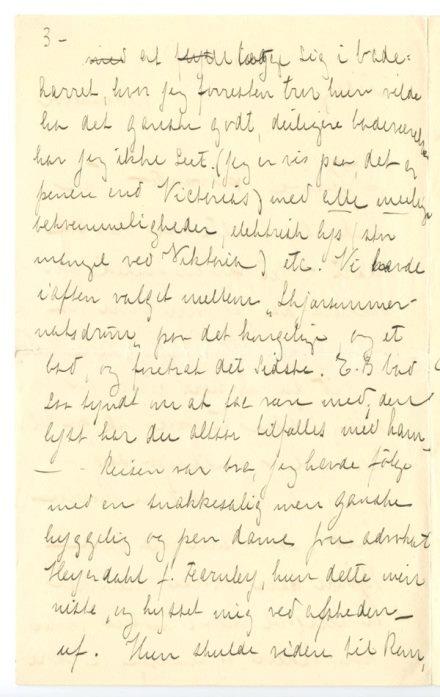 3-
med at lægge sig i bade-
karret, hvor jeg forresten tror hun vilde
ha det ganske godt, deiligere badeværelse
har jeg ikke seet. (Jeg er vis paa, det er
penere end Victorias) med alle mulige
bekvemmeligheder, elektrisk lys (stor
mangel ved Viktoria) etc. Vi havde
iaften valget mellem "Skjærsommer-
natsdrøm" paa det kongelige, og et
bad, og foretrak det sidste. E.B bad
saa tyndt om at faa være med, den
lyst har du altsaa tilfælles med ham
— - Reisen var bra, jeg havde følge
med en snakkesalig men ganske
hyggelig og pen dame fru advokat
Heyerdahl f. Fearnley, hun delte min
niste, og kysset mig ved afskeden —
uf. Hun skulde videre til Rom,